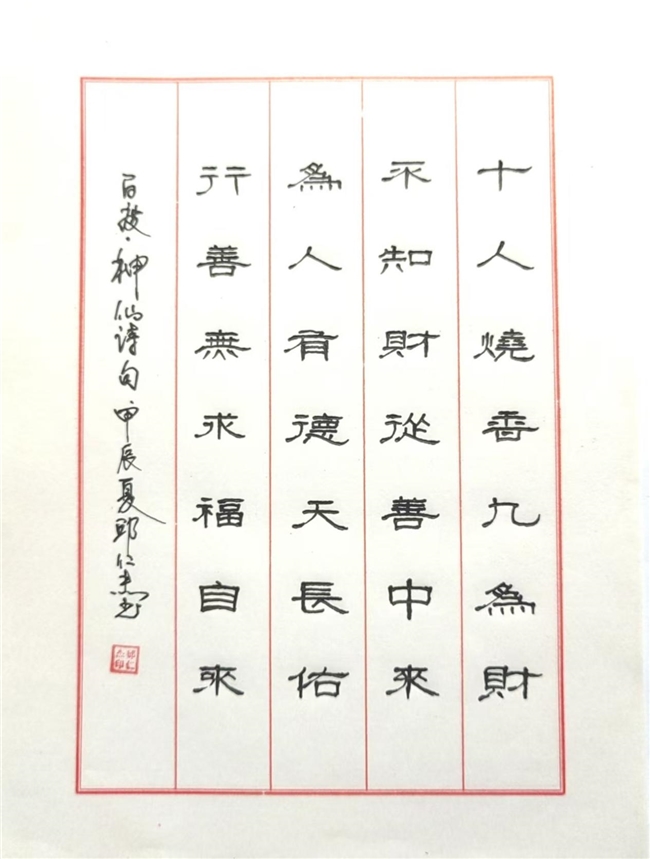 十人燒香九為財
不知財從善中來
為人有德天長佑
行善無求福自來
百教·神仙诗句甲辰夏邱仁杰书